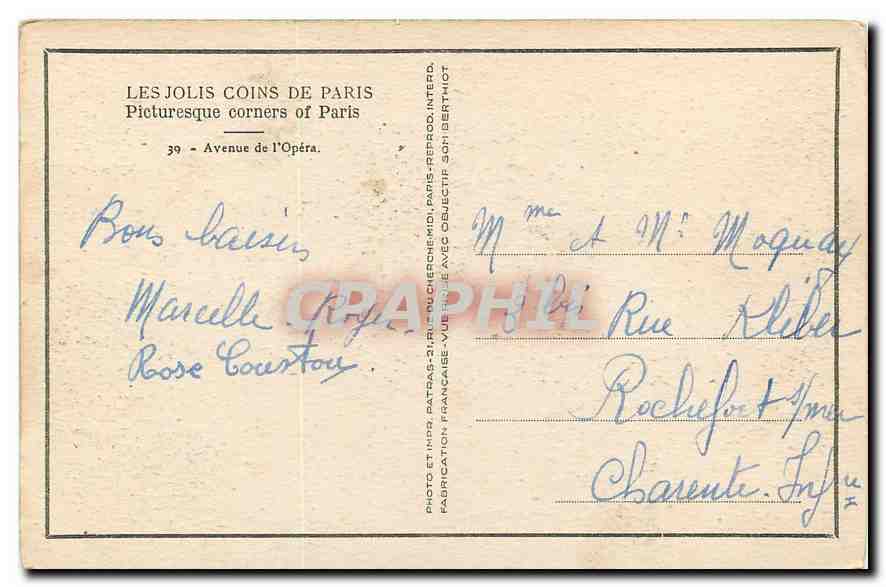 LES JOLIS COINS DE PARIS
Picturesque corners of Paris
39 - Avenue de l'Opéra.
Bons baisers
Marcelle. Roger.
Rose
PHOTO ET IMPR. PATRAS-21, RUE DU CHERCHE-MIDI, PARIS-REPROD. INTERD.
FABRICATION FRANÇAISE-VUE PRISE AVEC OBJECTIF SOM BERTHIOT
CRAPHIL
Mme & Mr Moquay
3 bis Rue Kléber
Rochefort s/mer
Charente. Infre